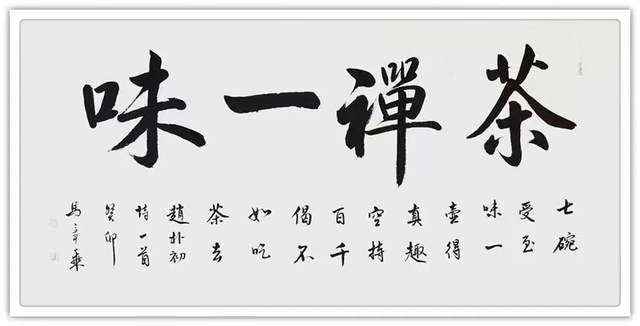 茶禪一味
七碗
受至
味一
壺得
真趣
空持
百千
偈不
如吃
茶去
趙朴初
詩一首
癸卯
馬